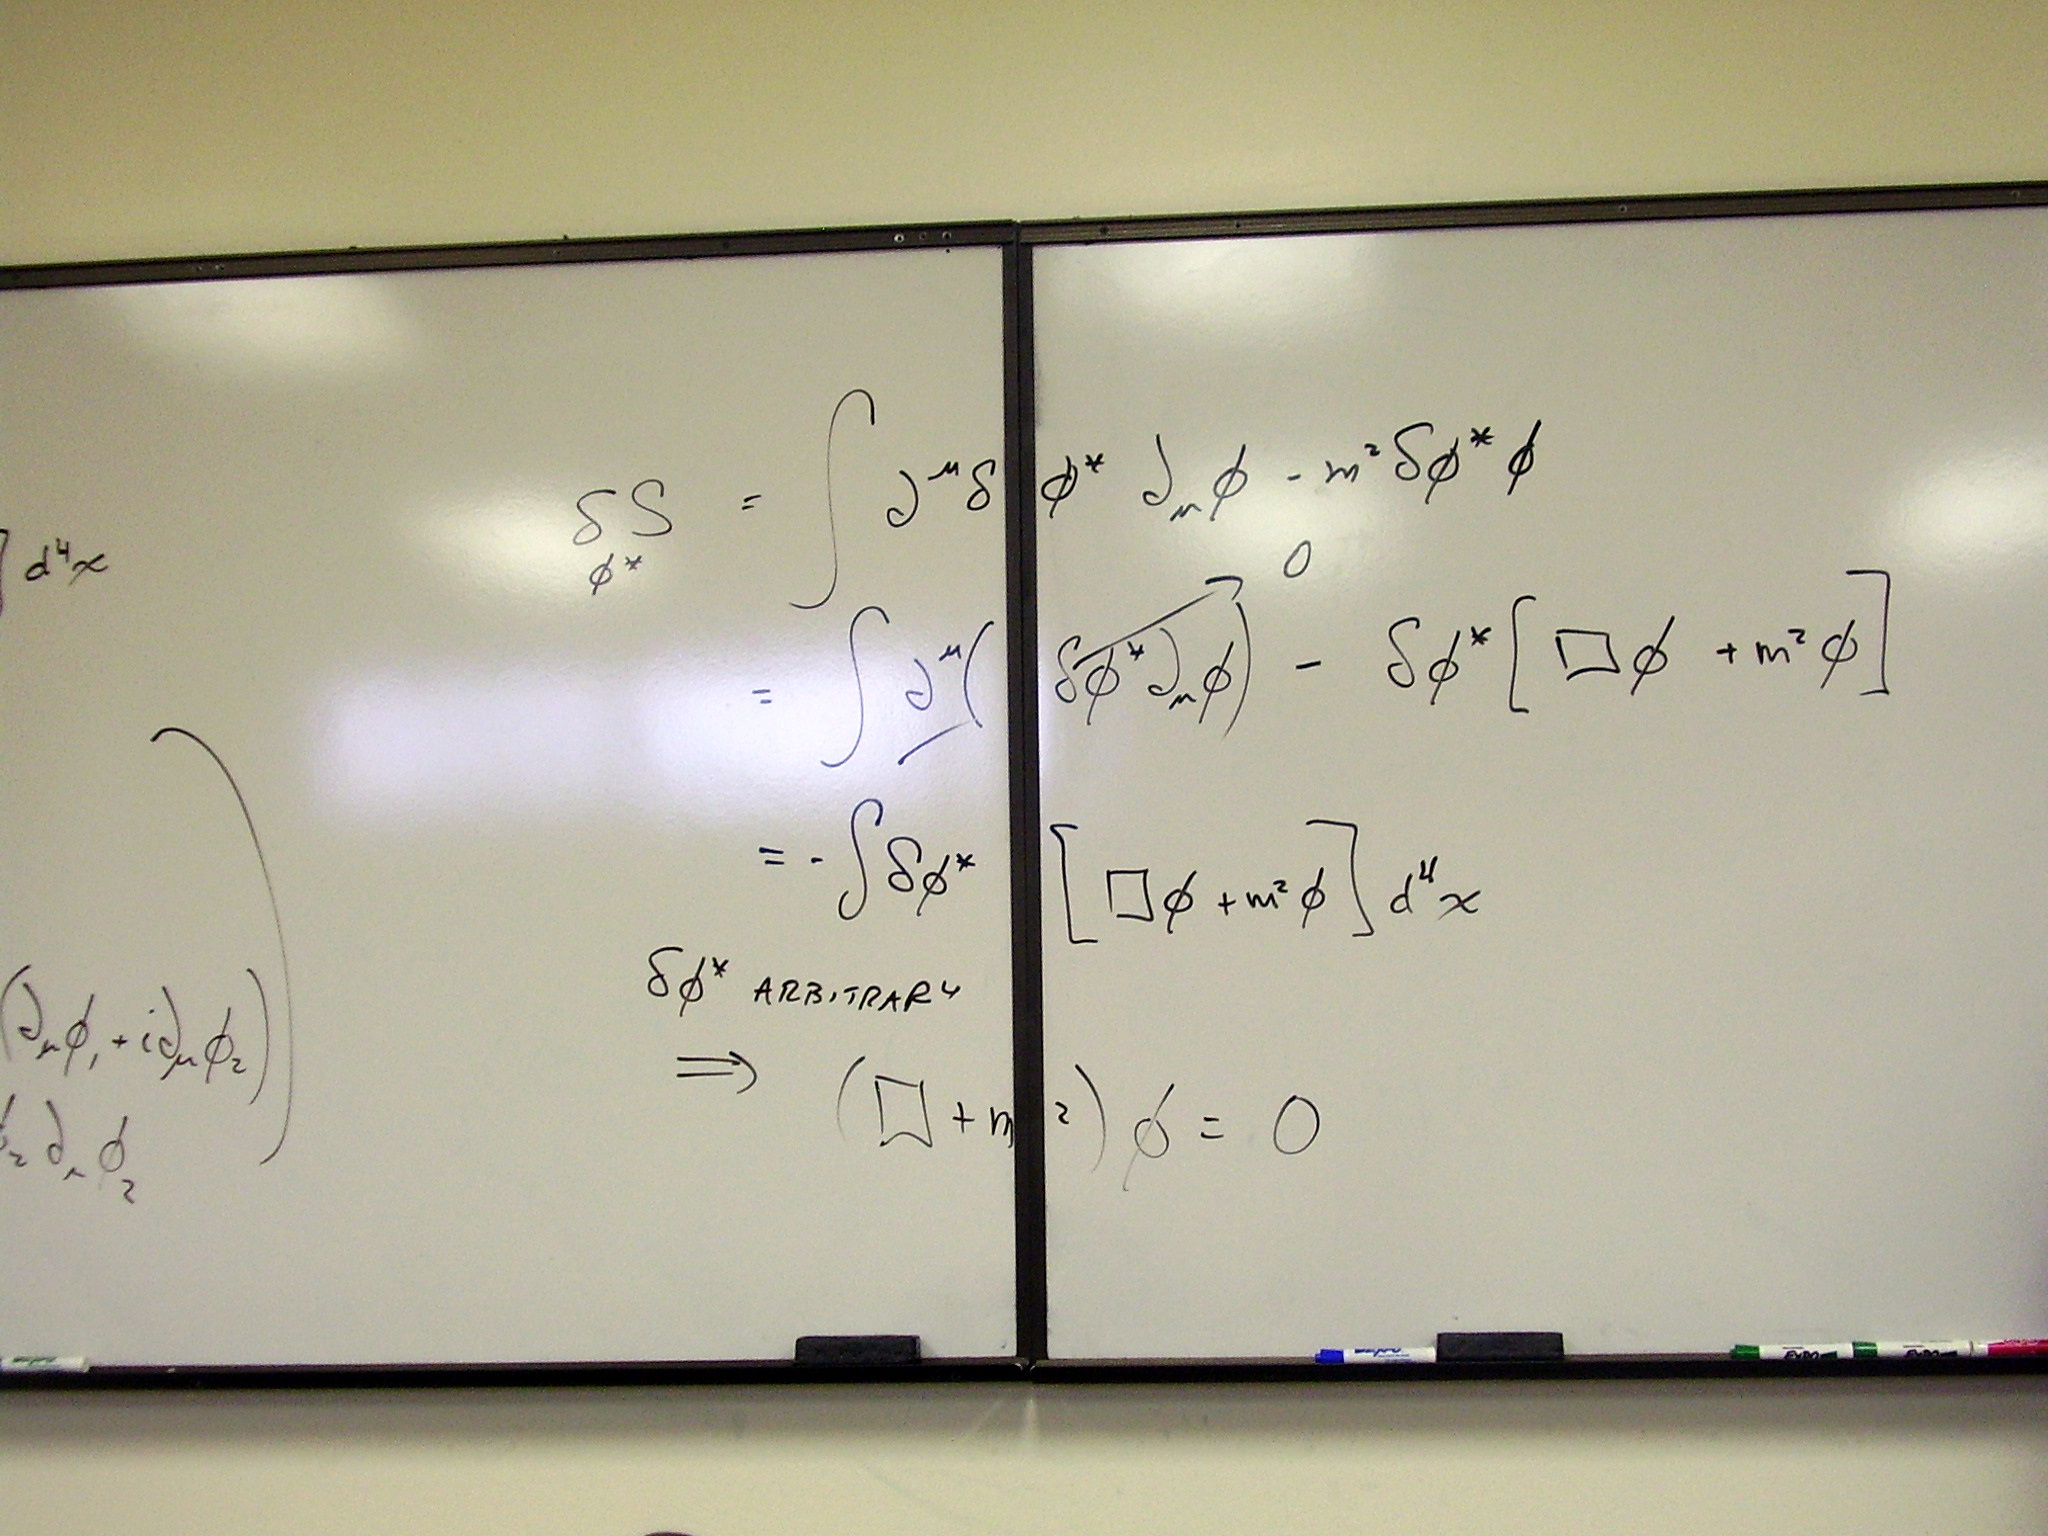 ] d⁴x
(∂_μφ₁ + i∂_μφ₂)
φ₂ ∂_μ φ₂
δS_φ* = ∫ ∂^μ δφ* ∂_μφ - m² δφ* φ
= ∫ ∂^μ(δφ* ∂_μφ) → 0 - δφ* [□φ + m²φ]
= - ∫ δφ* [□φ + m²φ] d⁴x
δφ* ARBITRARY
⟹ (□ + m²) φ = 0
EXPO
EXPO